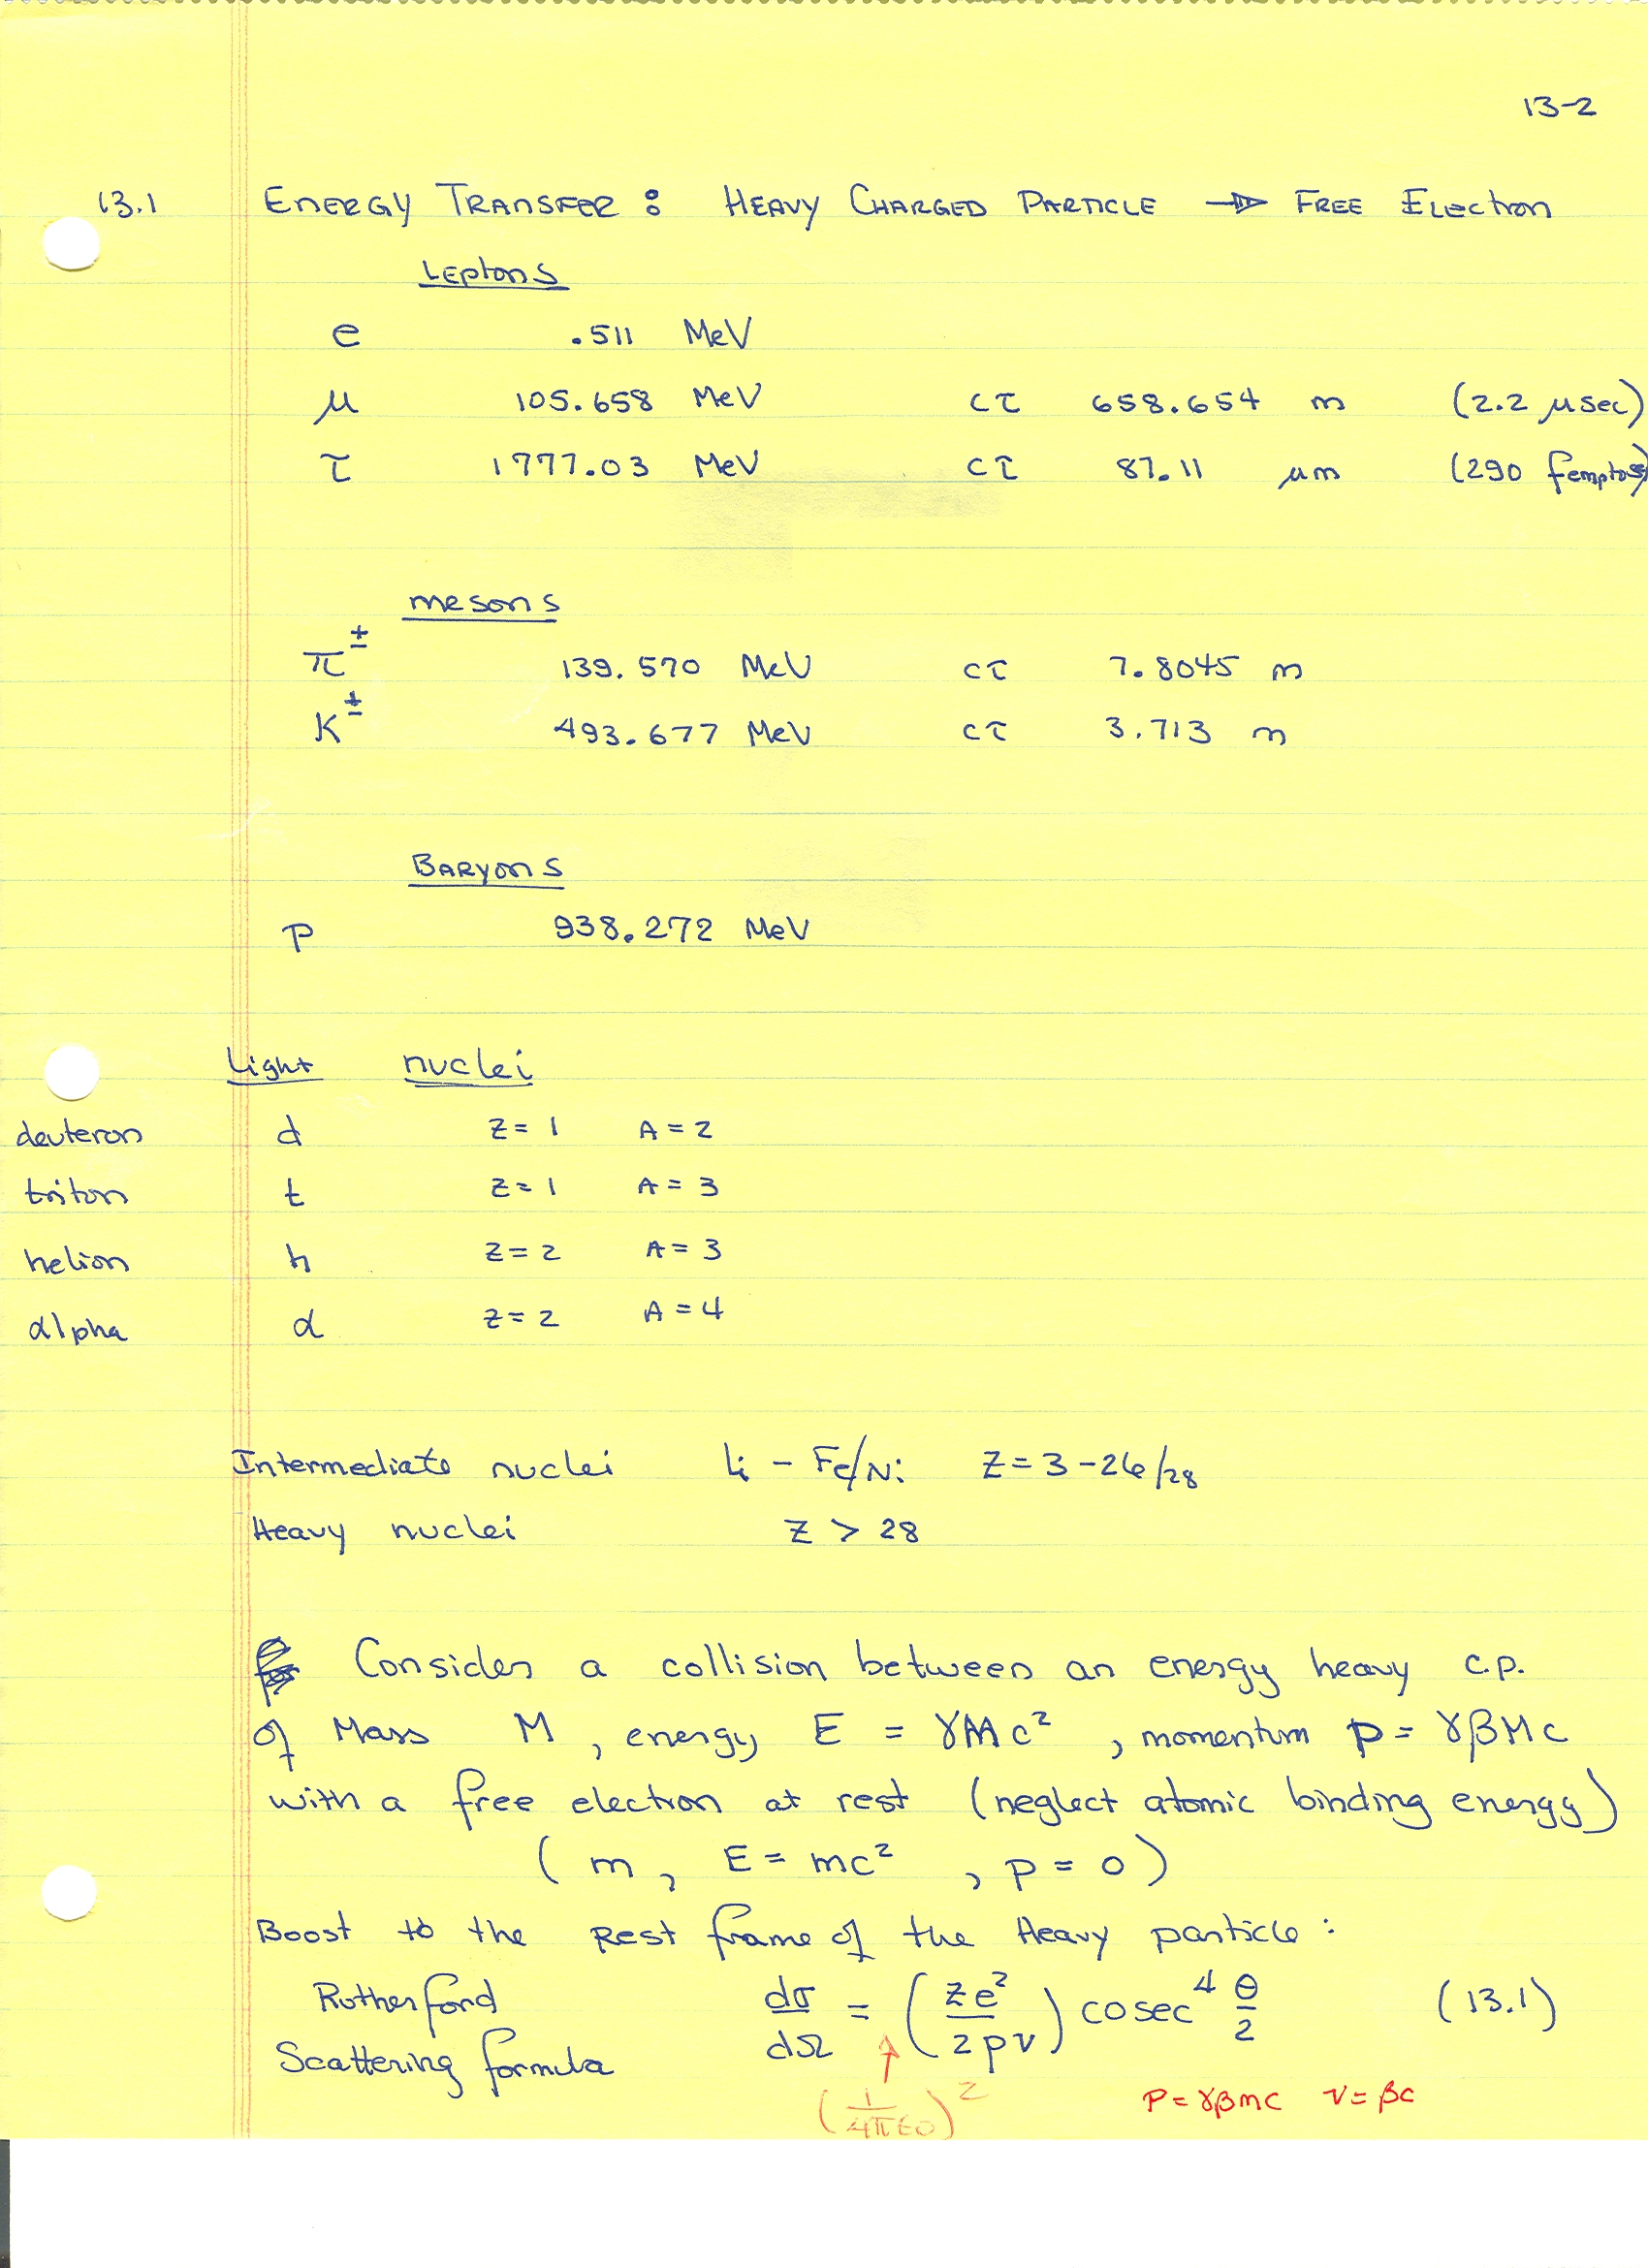 13-2
13.1 ENERGY TRANSFER: HEAVY CHARGED PARTICLE → FREE Electron
Leptons
e .511 MeV
μ 105.658 MeV cτ 658.654 m (2.2 μsec)
τ 1777.03 MeV cτ 87.11 μm (290 femptos)
mesons
π± 139.570 MeV cτ 7.8045 m
K± 493.677 MeV cτ 3.713 m
BARYONS
p 938.272 MeV
Light nuclei
deuteron d Z=1 A=2
triton t Z=1 A=3
helion h Z=2 A=3
alpha α Z=2 A=4
Intermediate nuclei Li - Fe/Ni Z=3-26/28
Heavy nuclei Z > 28
Consider a collision between an energy heavy c.p.
of Mass M, energy E = γMc², momentum p = γβMc
with a free electron at rest (neglect atomic binding energy)
(m, E = mc², p = 0)
Boost to the Rest frame of the Heavy particle:
Rutherford dσ/dΩ = (ze²/2pv) cosec⁴ θ/2 (13.1)
Scattering formula
↑
(1/4πε0)² p = γβmc v = βc